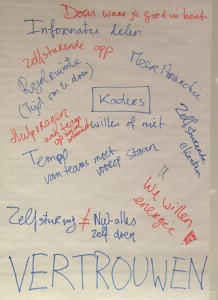 Doen waar je goed in bent
Informatie delen
Zelfsturende app
Meer Anarchie
Regelruimte
(Tijd om te doen)
Kaders
Zelfsturende
cliënten
Hulpvragen
aan team
willen of niet
Tempo
van teams moet
voorop staan
We willen
energie
Zelfsturing ≠ Niet alles
zelf doen
VERTROUWEN